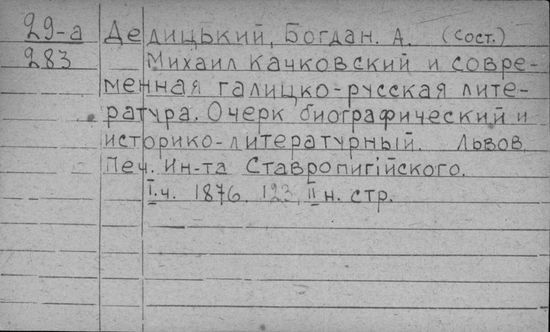 29-а Дедицький, Богдан. А. (сост.)
283 Михаил Качковский и совре-
менная галицко-русская лите-
ратура. Очерк биографический и
историко-литературный. Львов,
Печ. Ин-та Ставропигійского.
I.ч. 1876. 123, II н. стр.